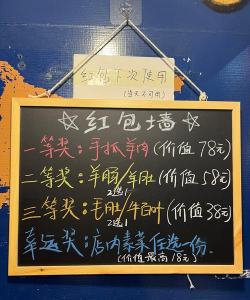 红包下次使用
(当天不可用)
☆红包墙☆
一等奖:手抓羊肉(价值78元)
二等奖:羊脑/羊肚(价值58元)
2选1
三等奖:毛肚/牛百叶(价值38元)
2选1
幸运奖:店内素菜任选一份
(价值最高18元)